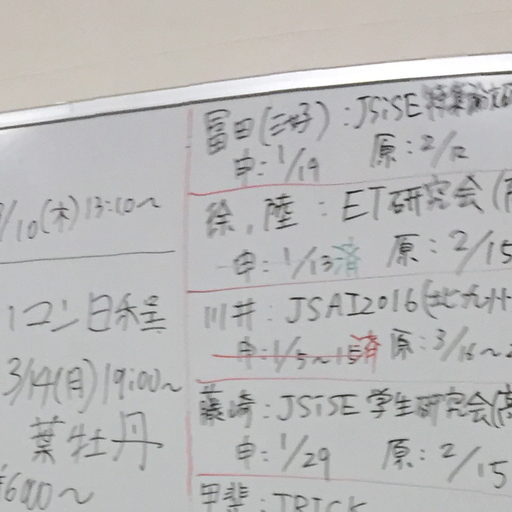 /10(木)13:00~
コン日程
3/14(月)19:00~
葉牡丹
¥6000~
冨田(三好):JSiSE特集論文研
申:1/19 原:2/12
徐,陸:ET研究会(
申:1/13済 原:2/15
川井:JSAI2016(北九州
申:1/5~15済 原:3/16~
藤崎:JSiSE学生研究会(
申:1/29 原:2/15
甲斐:TRICK